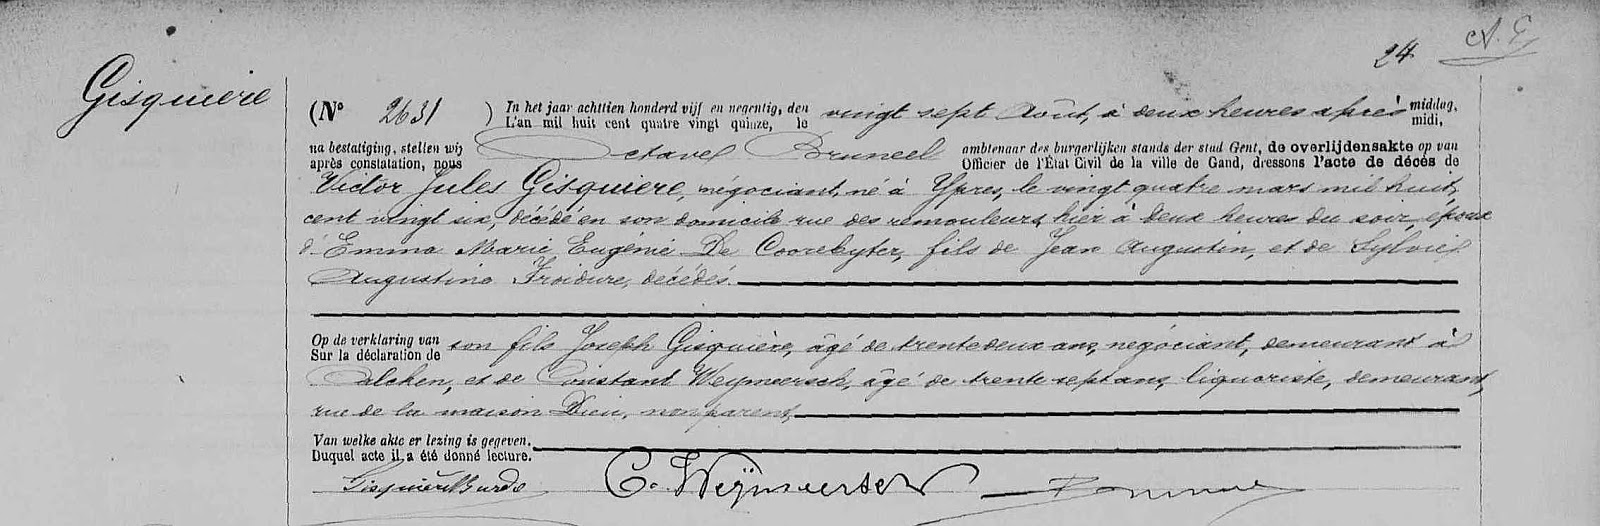 24 A. E.
Gisquiere
(No 2631) In het jaar achttien honderd vijf en negentig, den
L'an mil huit cent quatre vingt quinze, le vingt sept Août, à deux heures après middag,
midi,
na bestatiging, stellen wij Octave Bruneel ambtenaar des burgerlijken stands der stad Gent, de overlijdensakte op van
après constatation, nous Officier de l'État Civil de la ville de Gand, dressons l'acte de décès de
Victor Jules Gisquiere, négociant, né à Ypres, le vingt quatre mars mil huit
cent vingt six, décédé en son domicile rue des rémouleurs, hier à deux heures du soir, époux
d'Emma Marie Eugénie De Coorebyter, fils de Jean Augustin, et de Sylvie
Augustine Froidure, décédés.
Op de verklaring van
Sur la déclaration de son fils Joseph Gisquière, âgé de trente deux ans, négociant, demeurant à
Calcken, et de Constant Weymeersch, âgé de trente sept ans, liquoriste, demeurant,
rue de la maison Dieu, non parent,
Van welke akte er lezing is gegeven.
Duquel acte il a été donné lecture.
C. Weÿmeersch